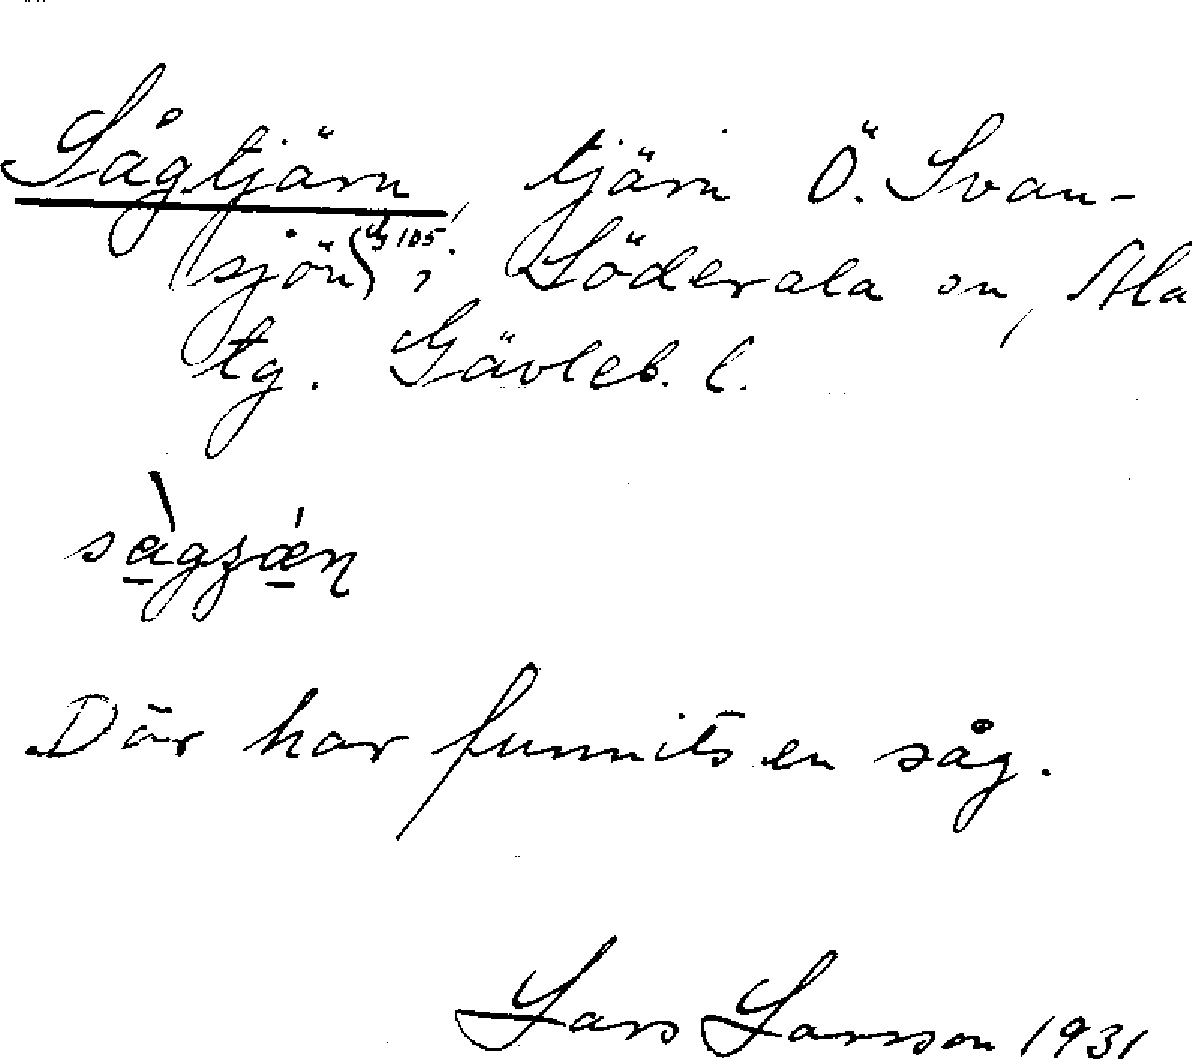 Sågtjärn, tjärn Ö. Svan-
sjön, Söderala sn, Ala
tg. Gävleb. l.
sågʒæ̀n
Där har funnits en såg.
Lars Larsson 1931